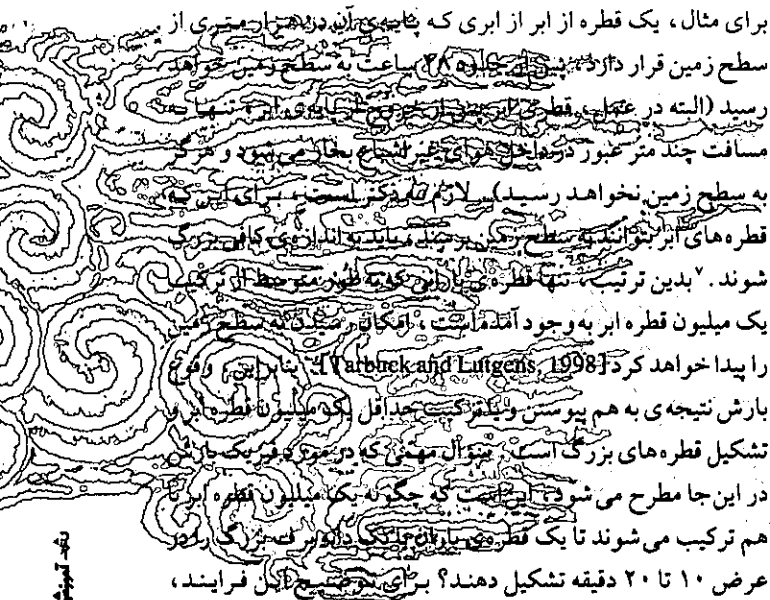 برای مثال، یک قطره از ابر از ابری که پایه‌ی آن در هزار متری از
سطح زمین قرار دارد، پس از حدود ۲۸ ساعت به سطح زمین خواهد
رسید (البته در عمل، قطره‌ی ابر پس از خروج از پایه‌ی ابر، تنها به
مسافت چند متر عبور در داخل هوای غیر اشباع بخار می‌شود و هرگز
به سطح زمین نخواهد رسید). لازم به ذکر است، برای این که،
قطره‌های ابر بتوانند به سطح زمین برسند، باید به اندازه‌ی کافی بزرگ
شوند.۷ بدین ترتیب، تنها قطره‌ی بارانی که به طور متوسط از ترکیب
یک میلیون قطره ابر به وجود آمده است، امکان رسیدن به سطح زمین
را پیدا خواهد کرد [Tarbuck and Lutgens, 1998]. بنابراین، وقوع
بارش نتیجه‌ی به هم پیوستن و ترکیب حداقل یک میلیون قطره ابر و
تشکیل قطره‌های بزرگ است. سؤال مهمی که در مورد فیزیک بارش
در این جا مطرح می‌شود، این است که چگونه یک میلیون قطره ابر با
هم ترکیب می‌شوند تا یک قطره‌ی باران یا یک دانه برف بزرگ را در
عرض ۱۰ تا ۲۰ دقیقه تشکیل دهند؟ برای توضیح این فرایند،
رشد آموزش